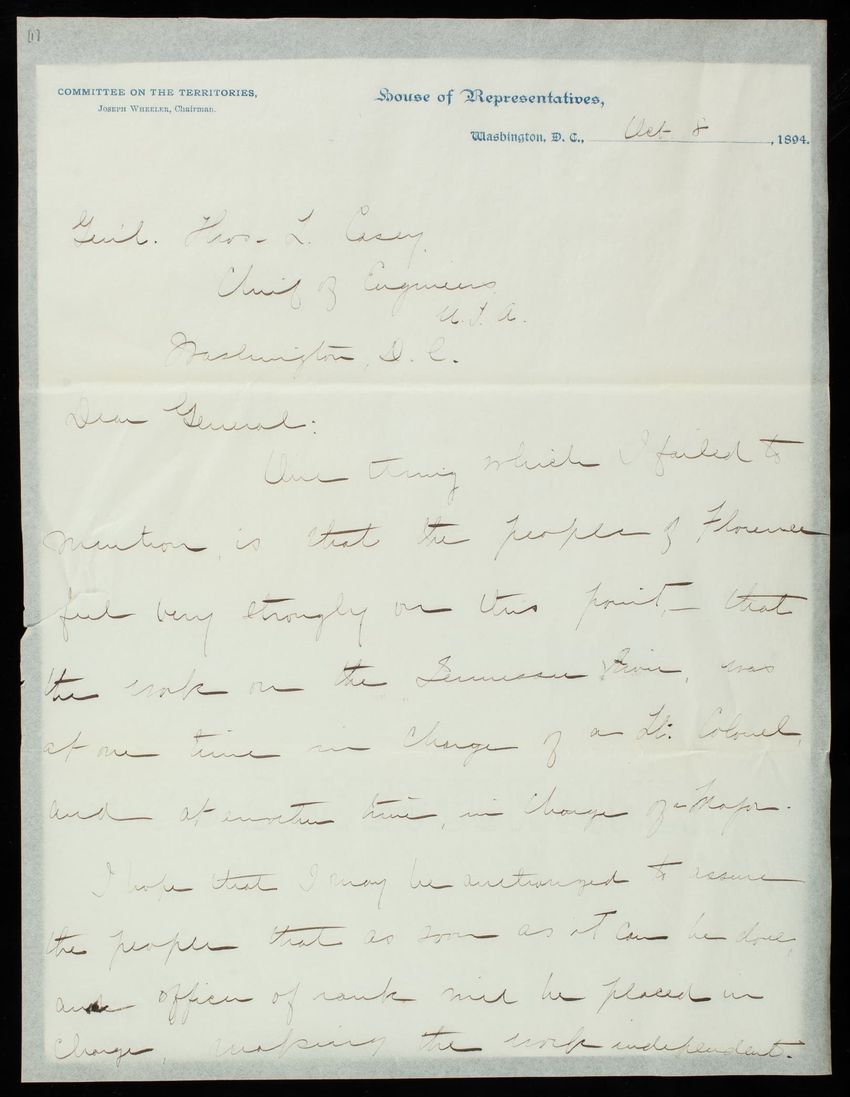 (1)
COMMITTEE ON THE TERRITORIES,
JOSEPH WHEELER, Chairman.
House of Representatives,
Washington, D. C., Oct 8, 1894.
Gen'l. Thos. L. Casey,
Chief of Engineers
U.S.A.
Washington, D.C.
Dear General:
One thing which I failed to
mention, is that the people of Florence
feel very strongly on this point, – that
the work on the Tennessee River, was
at one time in charge of a Lt. Colonel,
and at another time, in charge of a Major.
I hope that I may be authorized to assure
the people that as soon as it can be done,
an officer of rank will be placed in
charge, making the work independent.